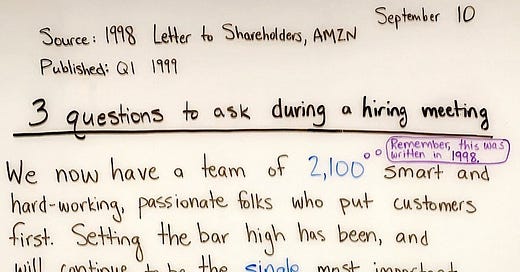 September 10
Source: 1998 Letter to Shareholders, AMZN
Published: Q1 1999
3 questions to ask during a hiring meeting
Remember, this was
written in 1998.
We now have a team of 2,100 smart and
hard-working, passionate folks who put customers
first. Setting the bar high has been, and
will continue to be the single most important